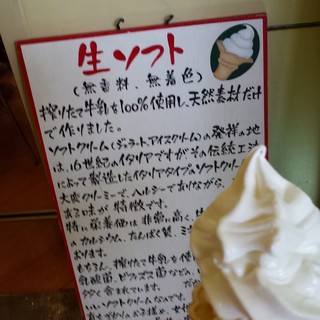 生ソフト
(無香料、無着色)
搾りたて牛乳を100%使用し、天然素材だけ
で作りました。
ソフトクリーム(ジェラート、アイスクリーム)の発祥の地
は、16世紀のイタリアですがその伝統工
によって製造したイタリアタイプのソフトクリー
大変クリーミーで、ヘルシーでありながら、
ある味が特徴です。
特に栄養価は非常に高く、牛
のカルシウム、たんぱく質、ミ
おります。
もちろん、搾りたて牛乳を使
乳酸菌、ビフィズス菌など、
多く含まれています。
いいソフトクリームなんです。
お子様や、女性